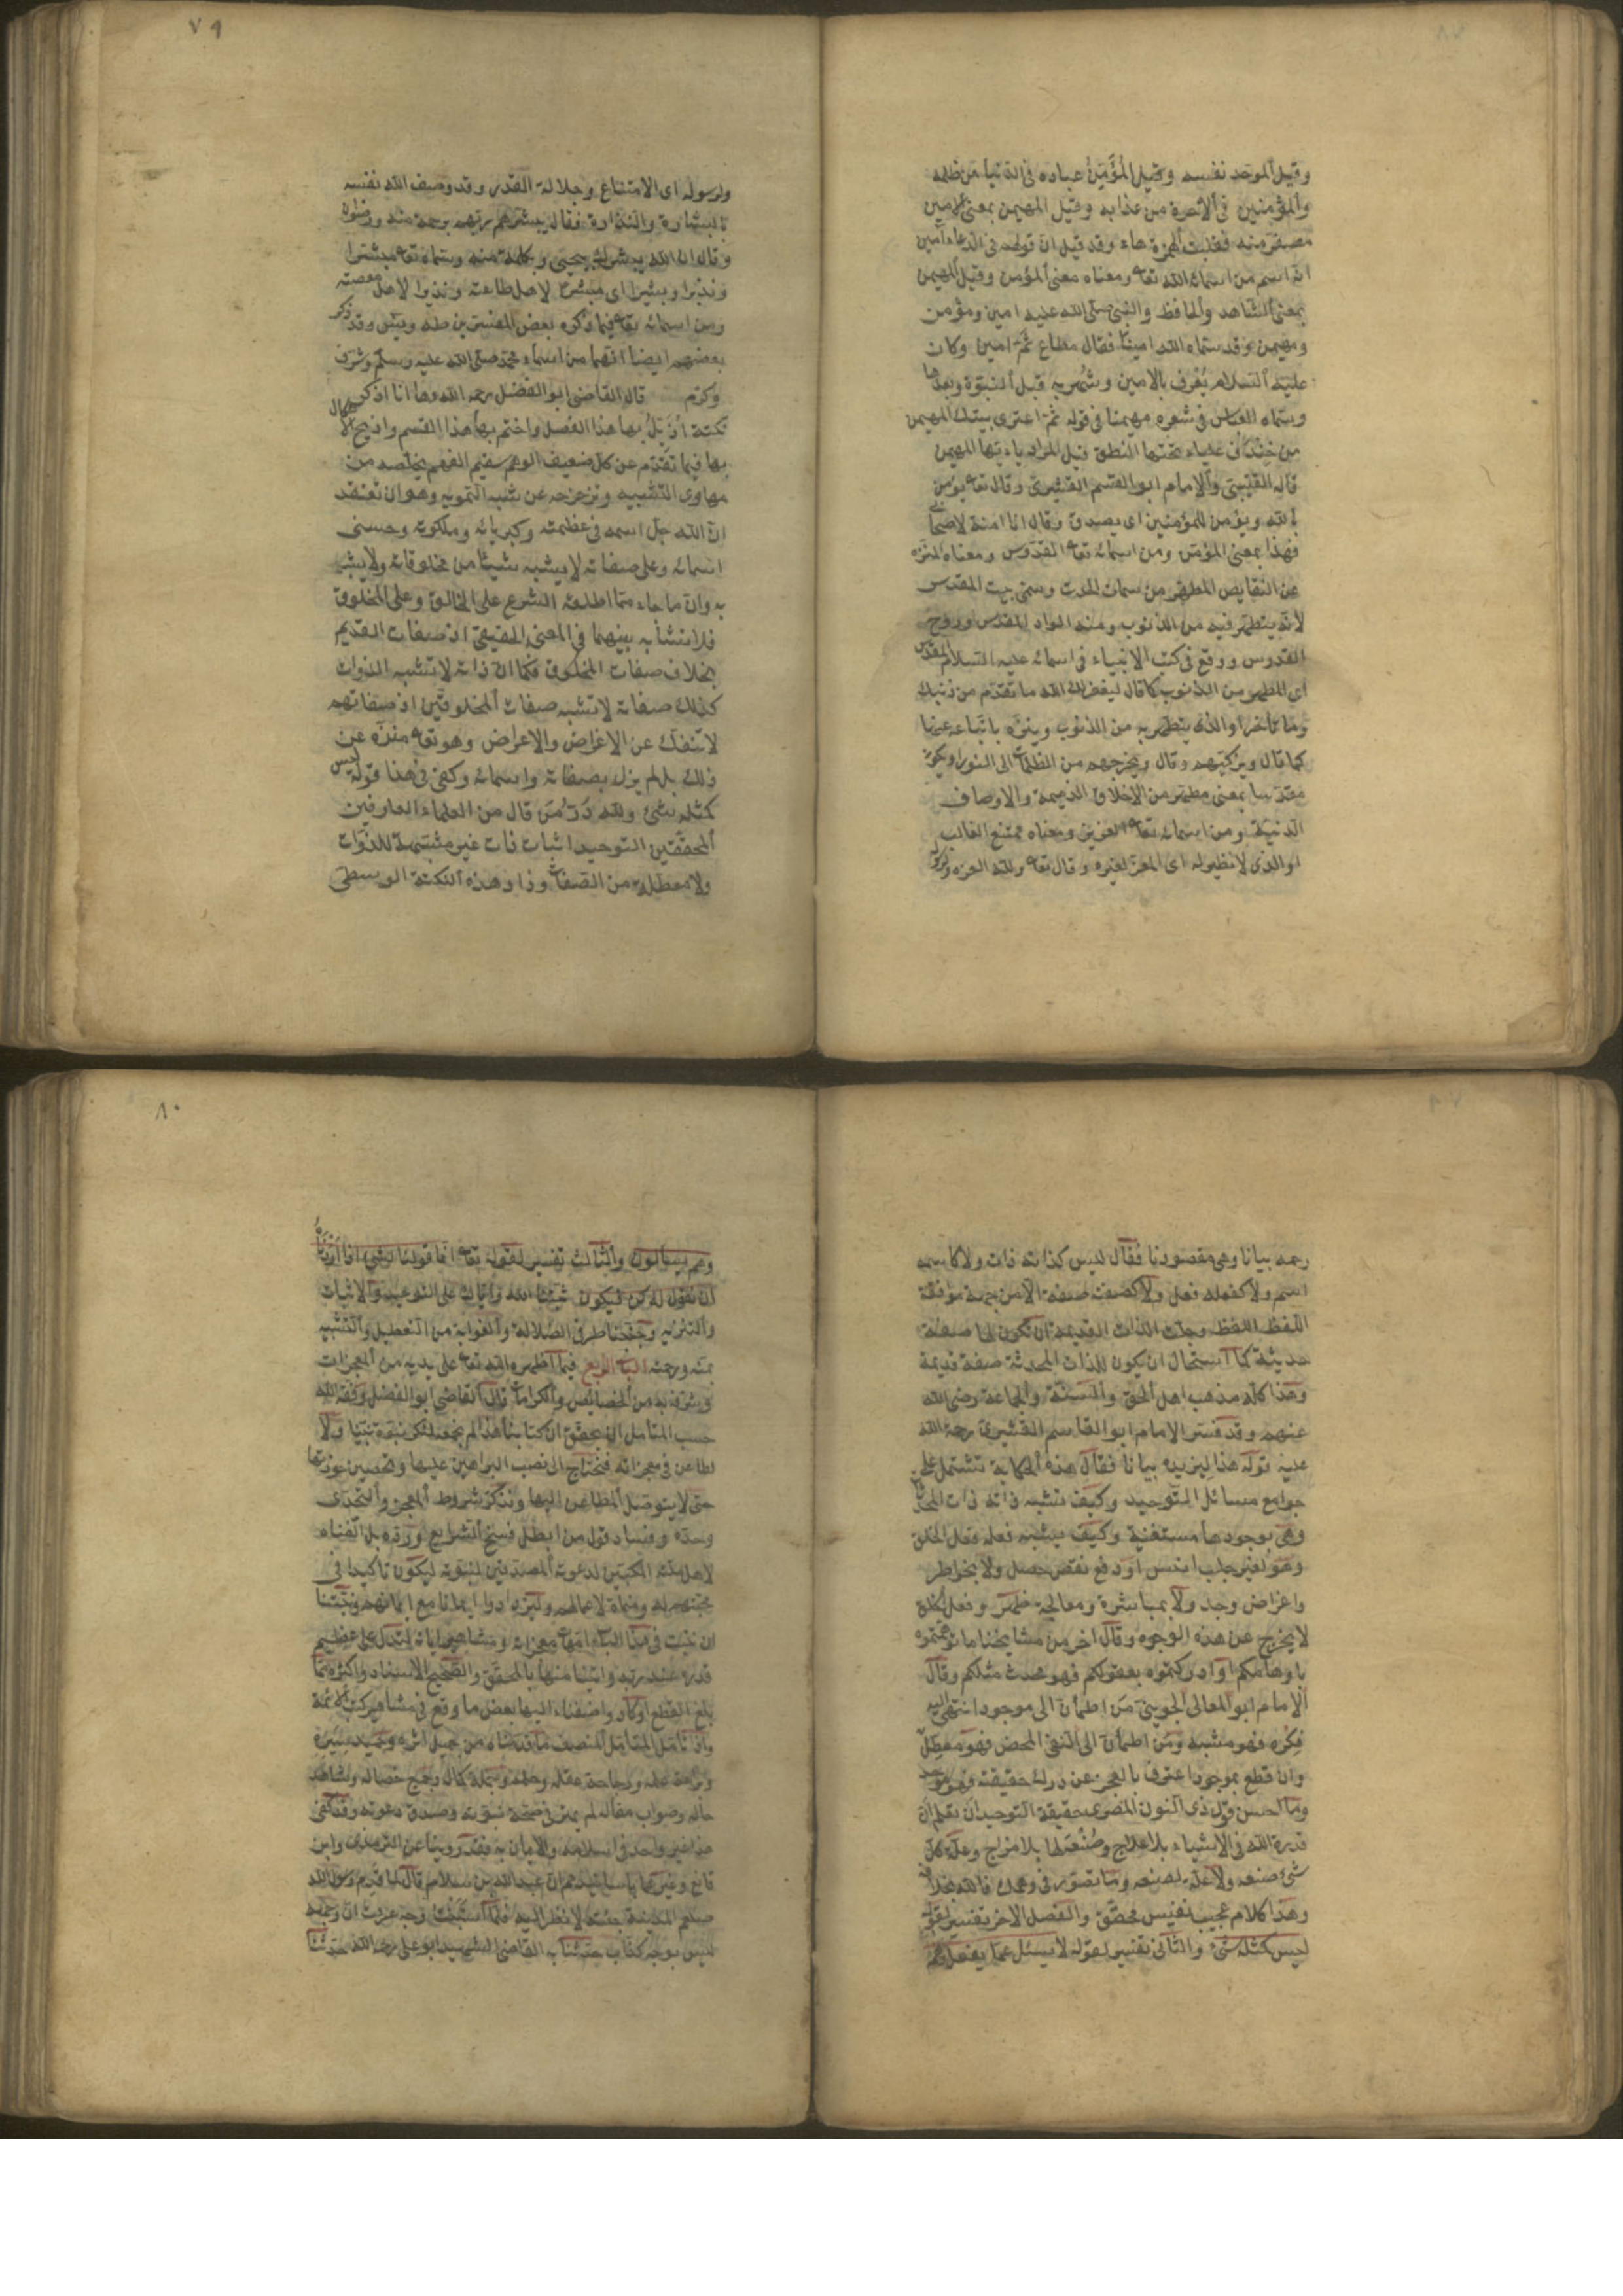 ٧٩
وقيل الموحد نفسه وقيل المُؤَمِّنُ عباده فى الدنيا من ظلمه
والمؤمنين فى الآخرة من عذابه وقيل المهيمن بمعنى الامين
مصغر منه فقلبت الهمزة هاء وقد قيل ان قولهم فى الدعاء آمين
انه اسم من اسماء الله تعا ومعناه معنى المؤمن وقيل المهيمن
بمعنى الشاهد والحافظ والنبى صلى الله عليه امين ومؤمن
ومهيمن وقد سماه الله امينا فقال مطاع ثم امين وكان
عليه السلام يُعْرف بالامين وشهر به قبل النبوة وبعدها
وسماه العباس فى شعره مهيمنا فى قوله ثم اغتدى بيتك المهيمن
من خِنْدَف علياء تحتها النطق قيل المراد يا ايها المهيمن
قاله القتيبى والامام ابو القسم القشيرى وقال تعا يؤمن
بالله ويؤمن للمؤمنين اى يصدق وقال انا امنة لاصحابى
فهذا بمعنى المؤمن ومن اسمائه تعا القدوس ومعناه المنزه
عن النقايص المطهر من سمات الحدث وسمى بيت المقدس
لانه يتطهر فيه من الذنوب ومنه الواد المقدس وروح
القدوس ووقع فى كتب الانبياء فى اسمائه عليه السلام المقدس
اى المطهر من الذنوب كما قال ليغفر لك الله ما تقدم من ذنبك
وما تأخر او الذى يتطهر به من الذنوب ويتنزه باتباعه عنها
كما قال ويزكيهم وقال ويخرجهم من الظلمات الى النور او يكون
مقدسا بمعنى مطهر من الاخلاق الذميمة والاوصاف
الدنية ومن اسمائه تعا العزيز ومعناه ممتنع الغالب
او الذى لا نظير له اى المعز لغيره وقال تعا ولله العزة
ولرسوله اى الامتناع وجلالة القدر وقد وصف الله نفسه
بالبشارة والنذارة فقال يبشرهم ربهم برحمة منه ورضوان
وقال ان الله يبشرك بيحيى وبكلمة منه وسماه تعا مبشرا
ونذيرا وبشيرا اى مبشرا لاهل طاعته ونذيرا لاهل معصيته
ومن اسمائه تعا فيما ذكره بعض المفسرين طه ويس وقد ذكر
بعضهم ايضا انهما من اسماء محمد صلى الله عليه وسلم وشرف
وكرم قال القاضى ابو الفضل رحمه الله وها انا اذكر
نكتة اُذَيِّلُ بها هذا الفصل واختم بها هذا القسم وازيح الاشكال
بها فيما تقدم عن كل ضعيف الوهم سقيم الفهم يخلصه من
مهاوى التشبيه وتزحزحه عن شبه التمويه وهو ان تعتقد
ان الله جل اسمه فى عظمته وكبريائه وملكوته وحسنى
اسمائه وعلى صفاته لا يشبه شيئا من مخلوقاته ولا يشبه
به وان ما جاء مما اطلقه الشرع على الخالق وعلى المخلوق
فلا تشابه بينهما فى المعنى الحقيقى اذ صفات القديم
بخلاف صفات المخلوق فكما ان ذاته لا تشبه الذوات
كذلك صفاته لا تشبه صفات المخلوقين اذ صفاتهم
لا تنفك عن الاغراض والاعراض وهو تعا منزه عن
ذلك بل لم يزل بصفاته واسمائه وكفى فى هذا قوله ليس
كمثله شئ ولله دَرُّ مَن قال من العلماء العارفين
المحققين التوحيد اثبات ذات غير مشبهة للذوات
ولا معطلة من الصفات وزاد هذه النكتة الوسطى
٨٠
رحمه بيانا وهى مقصودنا فقال ليس كذاته ذات ولا كاسمه
اسم ولا كفعله فعل ولا كصفته صفة الا من جهة موافقة
اللفظ اللفظ وجلت الذات القديمة ان تكون لها صفة
حديثة كما استحال ان يكون للذات المحدثة صفة قديمة
وهذا كله مذهب اهل الحق والسنة والجماعة رضى الله
عنهم وقد فسر الامام ابو القاسم القشيرى رحمة الله
عليه قوله هذا ليزيده بيانا فقال هذه الحكاية تشتمل على
جوامع مسائل التوحيد وكيف تشبه ذاته ذات المحدثات
وهى بوجودها مستغنية وكيف يشبه فعله فعل الخلق
وهو لغير جلب انس او دفع نقص حصل ولا بخواطر
واغراض وجد ولا بمباشرة ومعالجة ظهر وفعل الخلق
لا يخرج عن هذه الوجوه وقال اخر من مشايخنا ما توهمتموه
باوهامكم او ادركتموه بعقولكم فهو محدث مثلكم وقال
الامام ابو المعالى الجوينى مَن اطمأن الى موجود انتهى اليه
فِكْره فهو مشبه ومن اطمأن الى النفى المحض فهو معطل
وان قطع بموجود اعترف بالعجز عن درك حقيقته فهو موحد
وما احسن قول ذى النون المصرى حقيقة التوحيد ان تعلم ان
قدرة الله فى الاشياء بلا علاج وصُنْعَه لها بلا مزاج وعلة كل
شئ صنعه ولا علة لصنعه وما تصور فى وهمك فالله بخلافه
وهذا كلام عجيب نفيس محقق والفصل الاخر تفسير لقوله
ليس كمثله شئ والثانى تفسير لقوله لا يسئل عما يفعل
وهم يسألون والثالث تفسير لقوله تعا انما قولنا لشئ اذا اردناه
ان نقول له كن فيكون ثبتنا الله واياك على التوحيد والاثبات
والتنزيه وجنبنا طرفى الضلالة والغواية من التعطيل والتشبيه
بمنه ورحمته الباب الرابع فيما اظهره الله تعا على يديه من المعجزات
وشرفه به من الخصايص والكرامات قال القاضى ابو الفضل وفقه الله
حسب المتأمل ان يحقق ان كتابنا هذا لم نجمعه لمنكر نبوة نبينا ولا
لطاعن فى معجزاته فنحتاج الى نصب البراهين عليها وتحصين حوزتها
حتى لا يتوصل المطاعن اليها ونذكر شروط المعجز والتحدى
وحده وفساد قول من ابطل نسخ الشرايع ورده بل الفناه
لاهل ملته الملبين لدعوته المصدقين لنبوته ليكون تاكيدا فى
محبتهم له ومنماة لاعمالهم وليزدادوا ايمانا مع ايمانهم ونيتنا
ان نثبت فى هذا الباب امهات معجزاته ومشاهير اياته لتدل على عظيم
قدره عند ربه واتينا منها بالمحقق والصحيح الاسناد واكثره مما
بلغ القطع او كاد واضفنا اليها بعض ما وقع فى مشاهير كتب الائمة
واذا تأمل المتأمل المنصف ما قدمناه من جميل اثره وحميد سيره
وبراعة علمه ورجاحة عقله وحلمه وجملة كماله وجميع خصاله وشاهد
حاله وصواب مقاله لم يمتر فى صحة نبوته وصدق دعوته وقد كفى
هذا غير واحد فى اسلامه والايمان به فقد روينا عن الترمذى وابن
قانع وغيرهما باسانيدهم ان عبد الله بن سلام قال لما قدم رسول الله
صلعم المدينة جئته لانظر اليه فلما استبنت وجهه عرفت ان وجهه
ليس بوجه كذاب حدثنا به القاضى الشهيد ابو على رحمه الله حدثنا